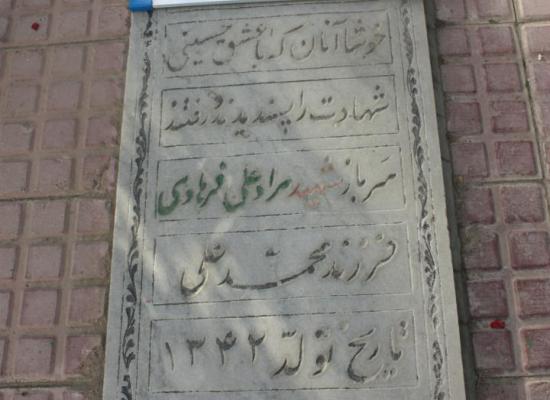 خوشا آنان که با عشق حسینی
شهادت را پسندیدند و رفتند
سرباز شهید مراد علی فرهادی
فرزند محمد علی
تاریخ تولد ۱۳۴۲